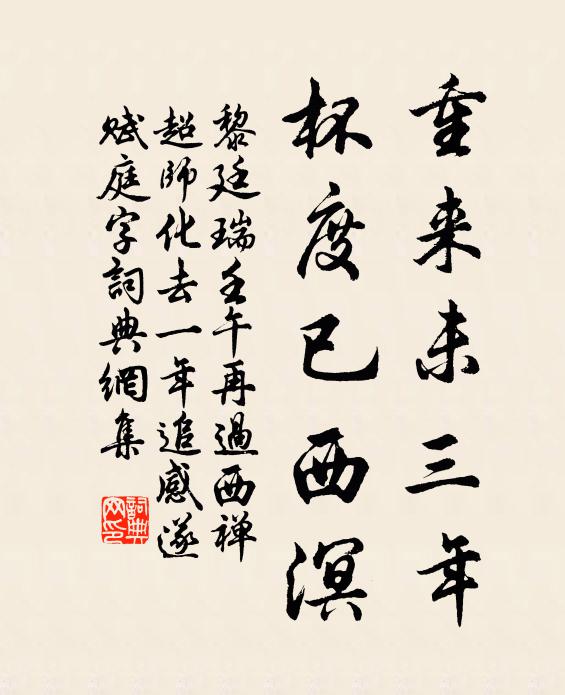 重来未三年
杯度已西溟
黎廷瑞壬午再過西禅
超師化去一年追感遂
賦庭字詞典網集
詞典網印